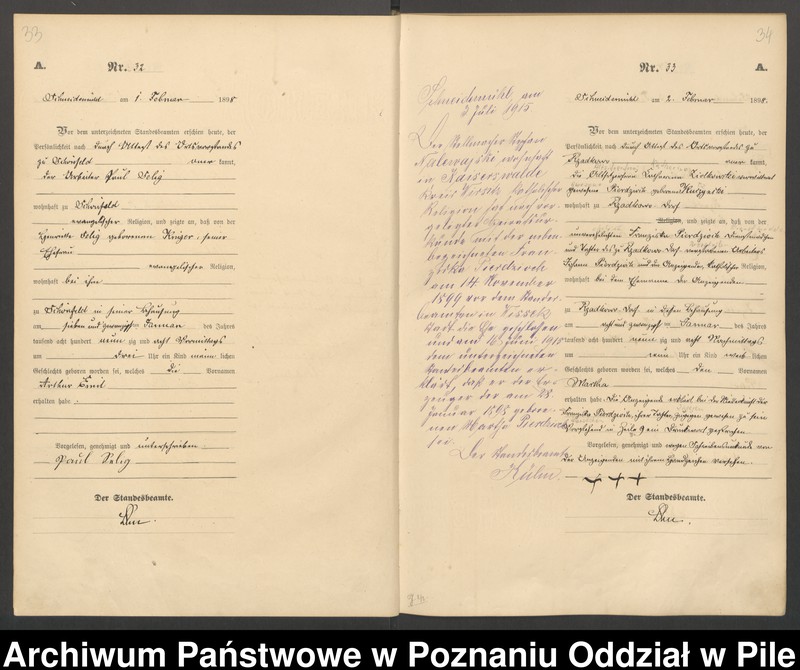 33
A.
Nr. 32
Schneidemühl am 1. Februar 1898
Vor dem unterzeichneten Standesbeamten erschien heute, der
Persönlichkeit nach durch Attest des Ortsvorstandes
zu Schönfeld kannt,
der Arbeiter Paul Selig
wohnhaft zu Schönfeld
evangelischer Religion, und zeigte an, daß von der
Selig geborenen Krüger, seiner
Ehefrau
evangelischer Religion,
wohnhaft bei ihm
zu Schönfeld in seiner Behausung
am sieben und zwanzigsten Januar des Jahres
tausend acht hundert neunzig und acht Vormittags
um drei Uhr ein Kind männlichen
Geschlechts geboren worden sei, welches die Vornamen
Arthur Emil
erhalten habe.
Vorgelesen, genehmigt und unterschrieben
Paul Selig
Der Standesbeamte.
34
Schneidemühl, am
Juli 1915
Der
wohnhaft
in Kaiserswalde
Kreis Wirsitz katholischer
Religion hat nach vor-
gelegter Heiratsur-
kunde mit der neben-
bezeichneten Fran-
ziska
am 14. November
1899 vor dem Standes-
beamten in Wissek
die Ehe geschlossen
und am 1915
dem unterzeichneten
Standesbeamten er-
klärt, daß er der Er-
zeuger der am 28.
Januar 1898 gebore-
nen Martha
sei.
Der Standesbeamte
A.
Nr. 33
Schneidemühl am 2. Februar 1898.
Vor dem unterzeichneten Standesbeamten erschien heute, der
Persönlichkeit nach durch Attest des Ortsvorstandes zu
Rzadkowo kannt,
die
geborene
wohnhaft zu Rzadkowo Dorf
Religion, und zeigte an, daß von der
unverehelichten Franziska
und Tochter des zu Rzadkowo Dorf verstorbenen Arbeiters
Johann und der Anzeigenden, katholischer Religion,
wohnhaft bei dem Ehemanne der Anzeigenden
zu Rzadkowo Dorf, in dessen Behausung
am acht und zwanzigsten Januar des Jahres
tausend acht hundert neunzig und acht Nachmittags
um neun Uhr ein Kind weiblichen
Geschlechts geboren worden sei, welches den Vornamen
Martha
erhalten habe. Die Anzeigende erklärt bei der Niederkunft der
Franziska ihrer Tochter, zugegen gewesen zu sein
Vorstehend in Zeile 9 ein Druckwort gestrichen
Vorgelesen, genehmigt und wegen Schreibensunkunde von
der Anzeigenden mit ihrem Handzeichen versehen.
+ + +
Der Standesbeamte.
Archiwum Państwowe w Poznaniu Oddział w Pile